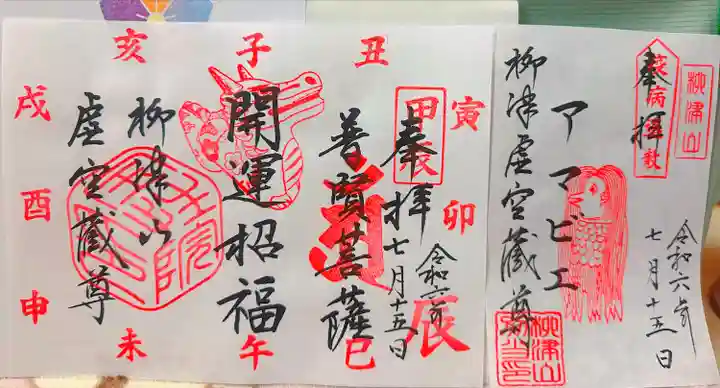 奉拝
甲辰
令和六年
七月十五日
普賢菩薩
開運招福
柳津山
虚空蔵尊
子
丑
寅
卯
辰
巳
午
未
申
酉
戌
亥
柳津山
奉拝
アマビエ
柳津虚空蔵尊
令和六年
七月十五日
柳津山